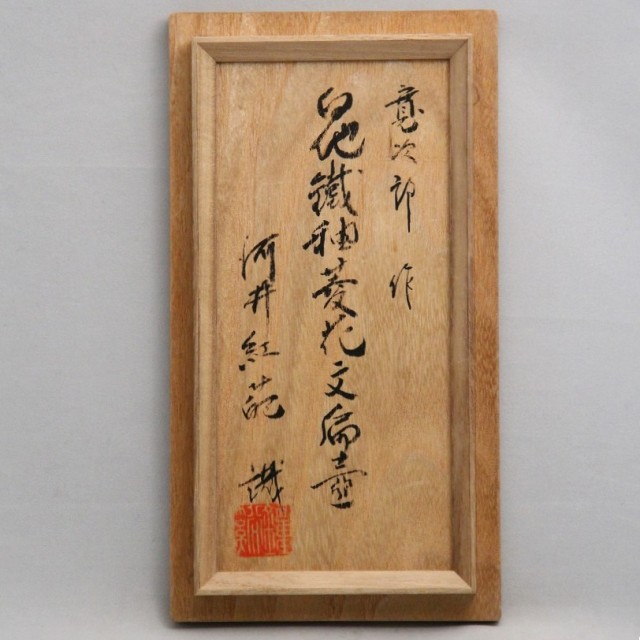 寛次郎 作
白地鐵釉菱花文扁壺
河井紅葩 識